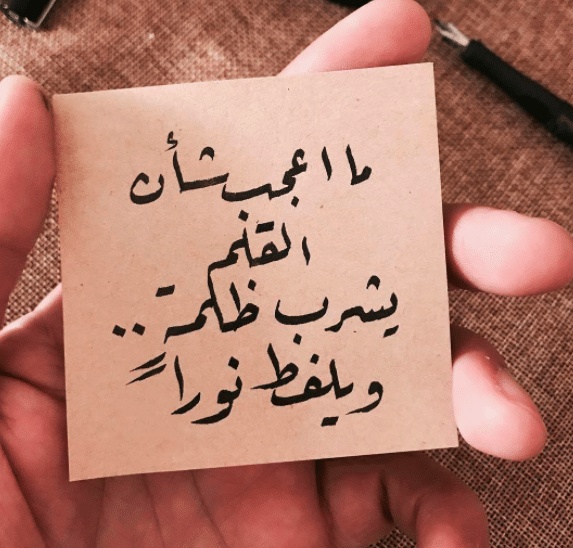 ما اعجب شأن
القلم
يشرب ظلمة..
ويلفظ نوراً